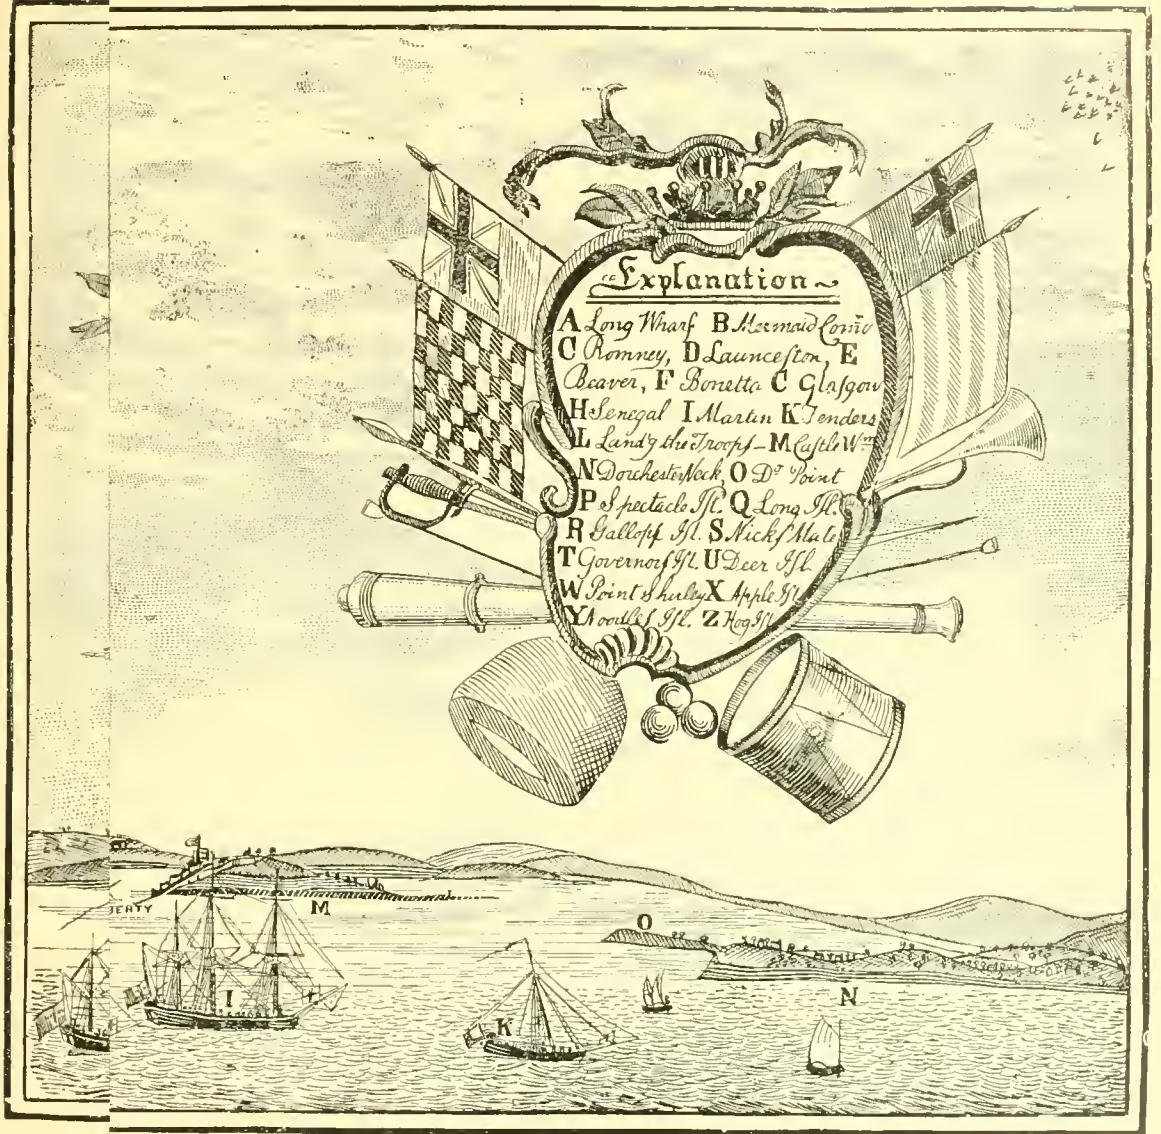 Explanation
A Long Wharf B Mermaid Com̃o
C Romney, D Launceſton, E
Beaver, F Bonetta C Glaſgow
H Senegal I Martin K Tenders
L Land'g the Troopſ – M Caſtle Wᵐ
N Dorcheſter Neck, O Dº Point
P Spectacle Iſl. Q Long Iſl.
R Gallopſ Iſl. S Nickſ Mate
T Governorſ Iſl. U Deer Iſl.
W Point Shirley X Apple Iſl
Y Noodleſ Iſl. Z Hog Iſl.
M
O
I
N
K